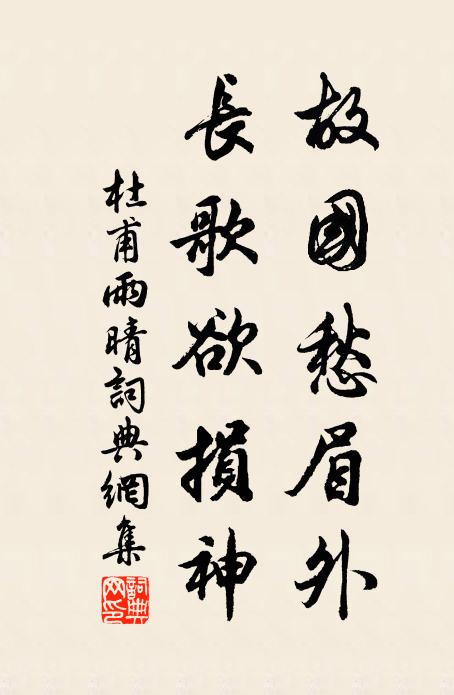 故國愁眉外
長歌欲損神
杜甫雨晴詞典網集
詞典網印